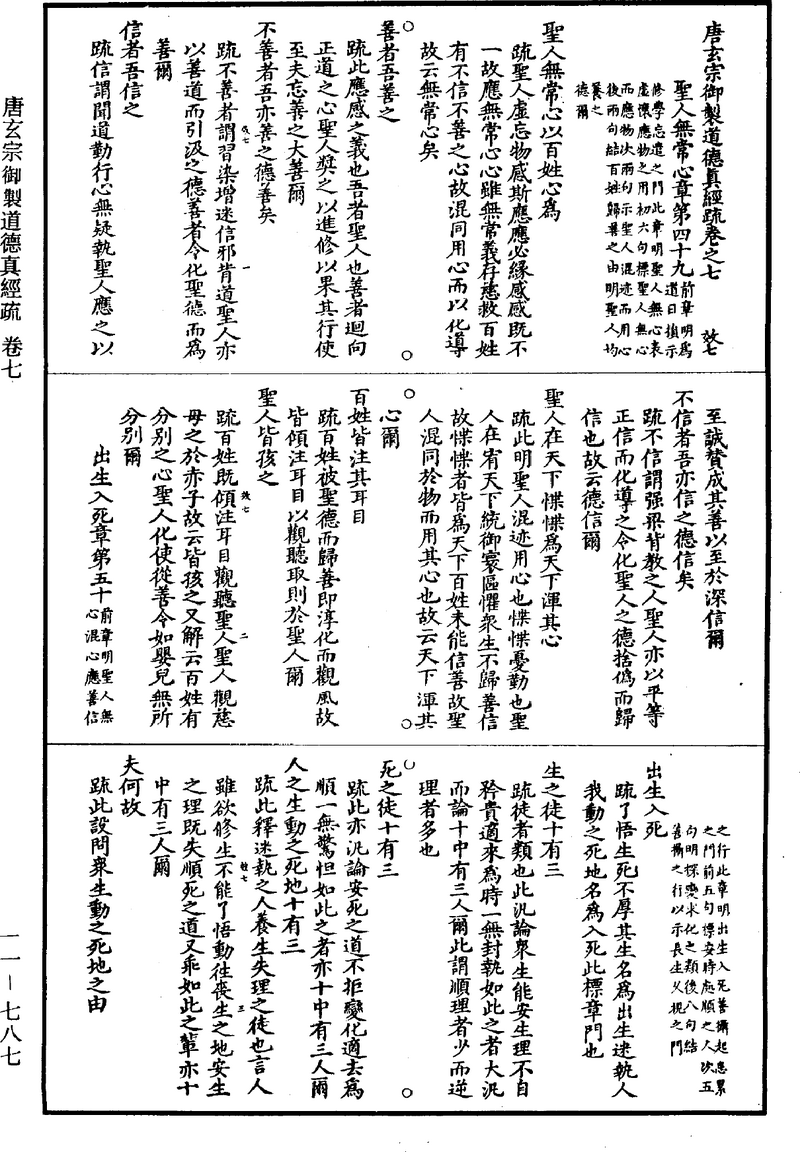 唐玄宗御製道德真經疏卷之七　效七
聖人無常心章第四十九
前章明爲
道日損示
修學忘遣之門此章明聖人無心表
虛懷應物之用初六句標聖人無心
而應物次兩句示聖人混迹而用心
後兩句結百姓歸冀之由明聖人均
養之
德爾
聖人無常心以百姓心爲
疏聖人虛忘物感斯應應必緣感感既不
一故應無常心心雖無常義存慈救百姓
有不信不善之心故混同用心而以化導
故云無常心矣
善者吾善之
疏此應感之義也吾者聖人也善者迴向
正道之心聖人獎之以進修以果其行使
至夫忘善之大善爾
不善者吾亦善之德善矣
疏不善者謂習染增迷信邪背道聖人亦
以善道而引汲之德善者令化聖德而爲
善爾
信者吾信之
疏信謂聞道勤行心無疑執聖人應之以
效七
一
至誠贊成其善以至於深信爾
不信者吾亦信之德信矣
疏不信謂强梁背教之人聖人亦以平等
正信而化導之令化聖人之德捨僞而歸
信也故云德信爾
聖人在天下惵惵爲天下渾其心
疏此明聖人混迹用心也惵惵憂勤也聖
人在宥天下統御寰區懼衆生不歸善信
故惵惵者皆爲天下百姓未能信善故聖
人混同於物而用其心也故云天下渾其
心爾
百姓皆注其耳目
疏百姓被聖德而歸善即淳化而觀風故
皆傾注耳目以觀聽取則於聖人爾
聖人皆孩之
疏百姓既傾注耳目觀聽聖人聖人觀慈
母之於赤子故云皆孩之又解云百姓有
分別之心聖人化使從善令如嬰兒無所
分別爾
效七
二
出生入死章第五十
前章明聖人無
心混心應善信
之行此章明出生入死善攝起患累
之門前五句標安時處順之人次五
句明探變求化之類後八句結
善攝之行以示長生久視之門
出生入死
疏了悟生死不厚其生名爲出生迷執人
我動之死地名爲入死此標章門也
生之徒十有三
疏徒者類也此汎論衆生能安生理不自
矜貴適來爲時一無封執如此之者大汎
而論十中有三人爾此謂順理者少而逆
理者多也
死之徒十有三
疏此亦汎論安死之道不拒變化適去爲
順一無驚怛如此之者亦十中有三人爾
人之生動之死地十有三
疏此釋迷執之人養生失理之徒也言人
雖欲修生不能了悟動往喪生之地安生
之理既失順死之道又乖如此之輩亦十
中有三人爾
夫何故
疏此設問衆生動之死地之由
效七
三
唐玄宗御製道德真經疏　卷七
一一—七八七